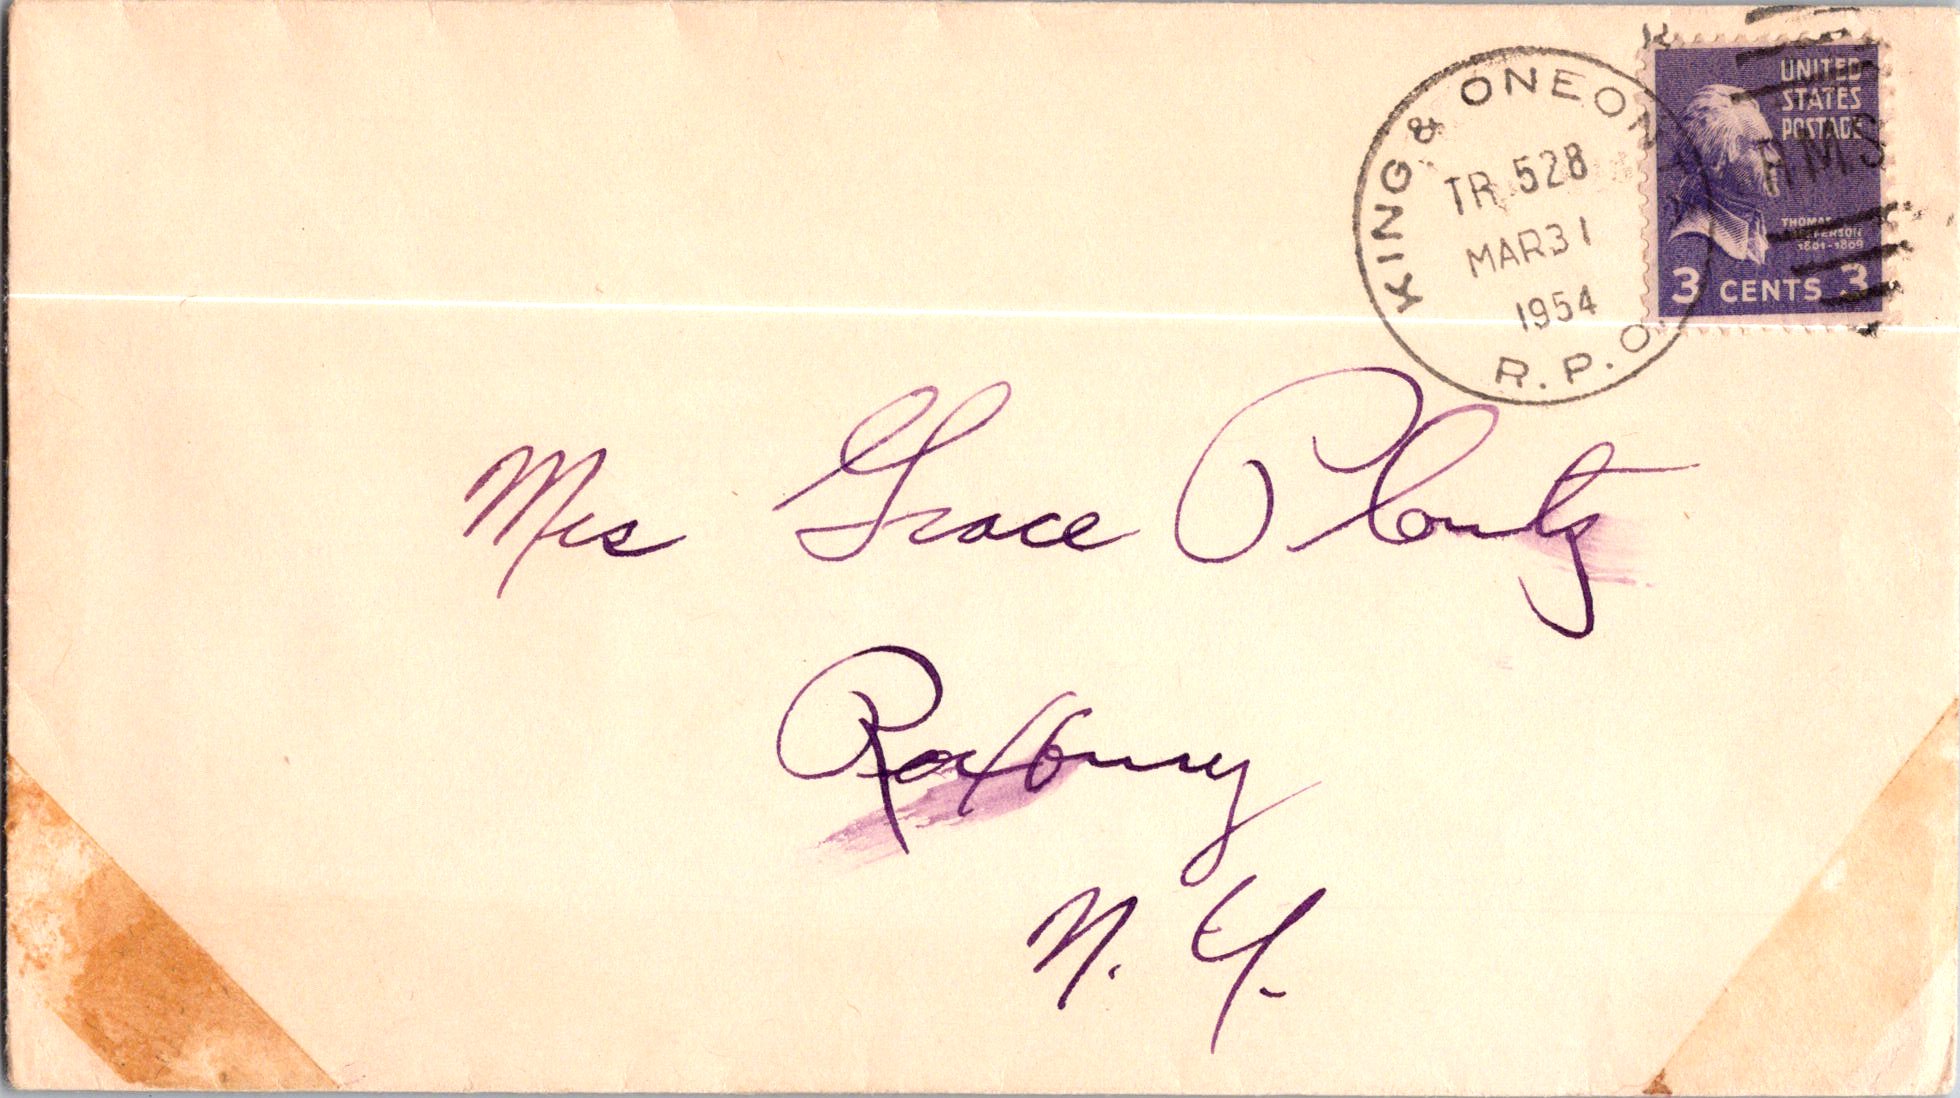 KING & ONEON
R.P.O.
TR.528
MAR31
1954
UNITED
STATES
POSTAGE
RMS
THOMAS
JEFFERSON
1801-1809
3 CENTS 3
Mrs Grace Plontz
Roxbury
N. Y.